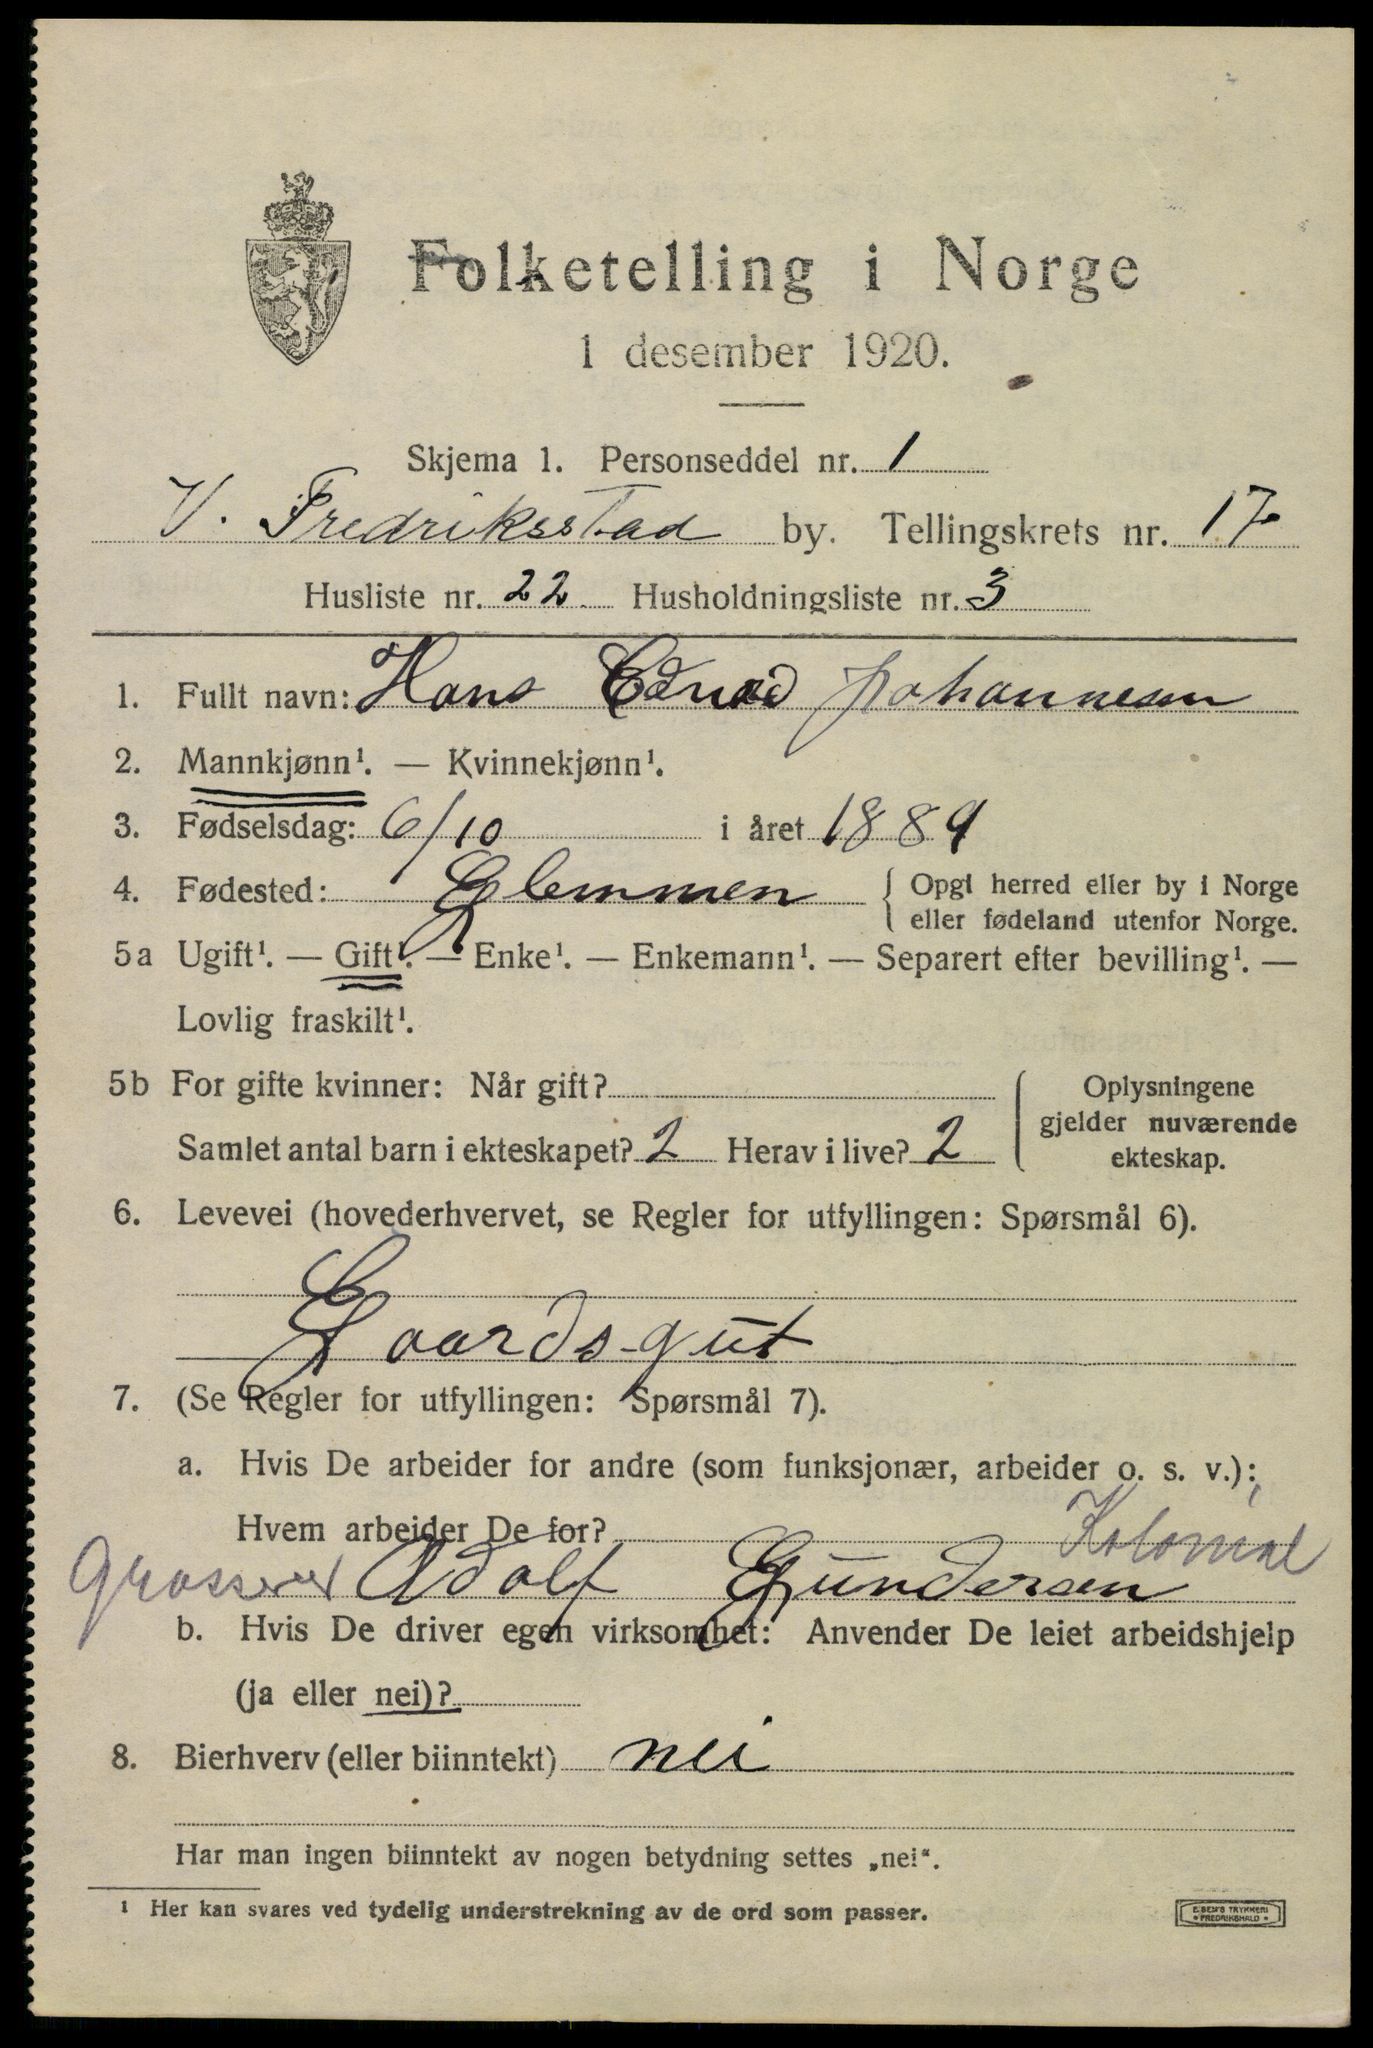 Folketelling i Norge
1 desember 1920.
Skjema 1. Personseddel nr. 1
V. Fredriksstad by. Tellingskrets nr. 17
Husliste nr. 22 Husholdningsliste nr. 3
1. Fullt navn: Hans Johannesen
2. Mannkjønn¹. — Kvinnekjønn¹.
3. Fødselsdag: 6/10 i året 1889
4. Fødested: Glemmen { Opgi herred eller by i Norge
eller fødeland utenfor Norge.
5a Ugift¹. — Gift¹. — Enke¹. — Enkemann¹. — Separert efter bevilling¹. —
Lovlig fraskilt¹.
5b For gifte kvinner: Når gift? { Oplysningene
gjelder nuværende
Samlet antal barn i ekteskapet? 2 Herav i live? 2
ekteskap.
6. Levevei (hovederhvervet, se Regler for utfyllingen: Spørsmål 6).
Gaardsgut
7. (Se Regler for utfyllingen: Spørsmål 7).
a. Hvis De arbeider for andre (som funksjonær, arbeider o. s. v.):
Hvem arbeider De for? Kolonial
Grosserer Adolf Gundersen
b. Hvis De driver egen virksomhet: Anvender De leiet arbeidshjelp
(ja eller nei)?
8. Bierhverv (eller biinntekt) nei
Har man ingen biinntekt av nogen betydning settes „nei“.
¹ Her kan svares ved tydelig understrekning av de ord som passer.
E. SEM'S TRYKKERI
• FREDRIKSHALD •